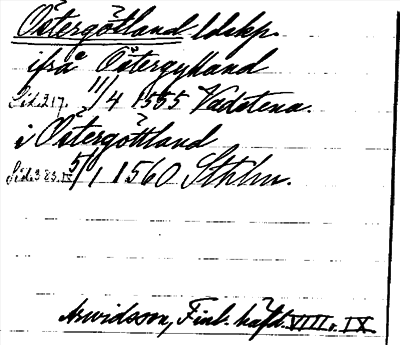 Östergötland ldskp.
ifrå Östergylland
Sid. 217. 11/4 1555 Vadstena.
i Östergöttland
Sid. 383. IX 5/1 1560 Sthlm.
Arwidsson, Finl. häfd. VIII, IX